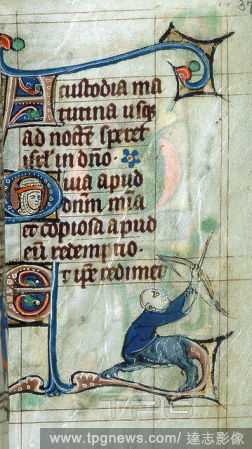 37
A custodia ma
tutina usqꝫ
ad noctē speret
isrl̄ in dn̄o.
Quia apud
dn̄m mīa
et copiosa apud
eū redemptio.
Et ip̄e redimet
TPG
www.tpgnews.com/ 達志影像